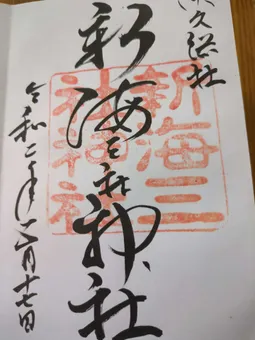 久総社
新海三社神社
新海三
社神社
令和二年月十七日